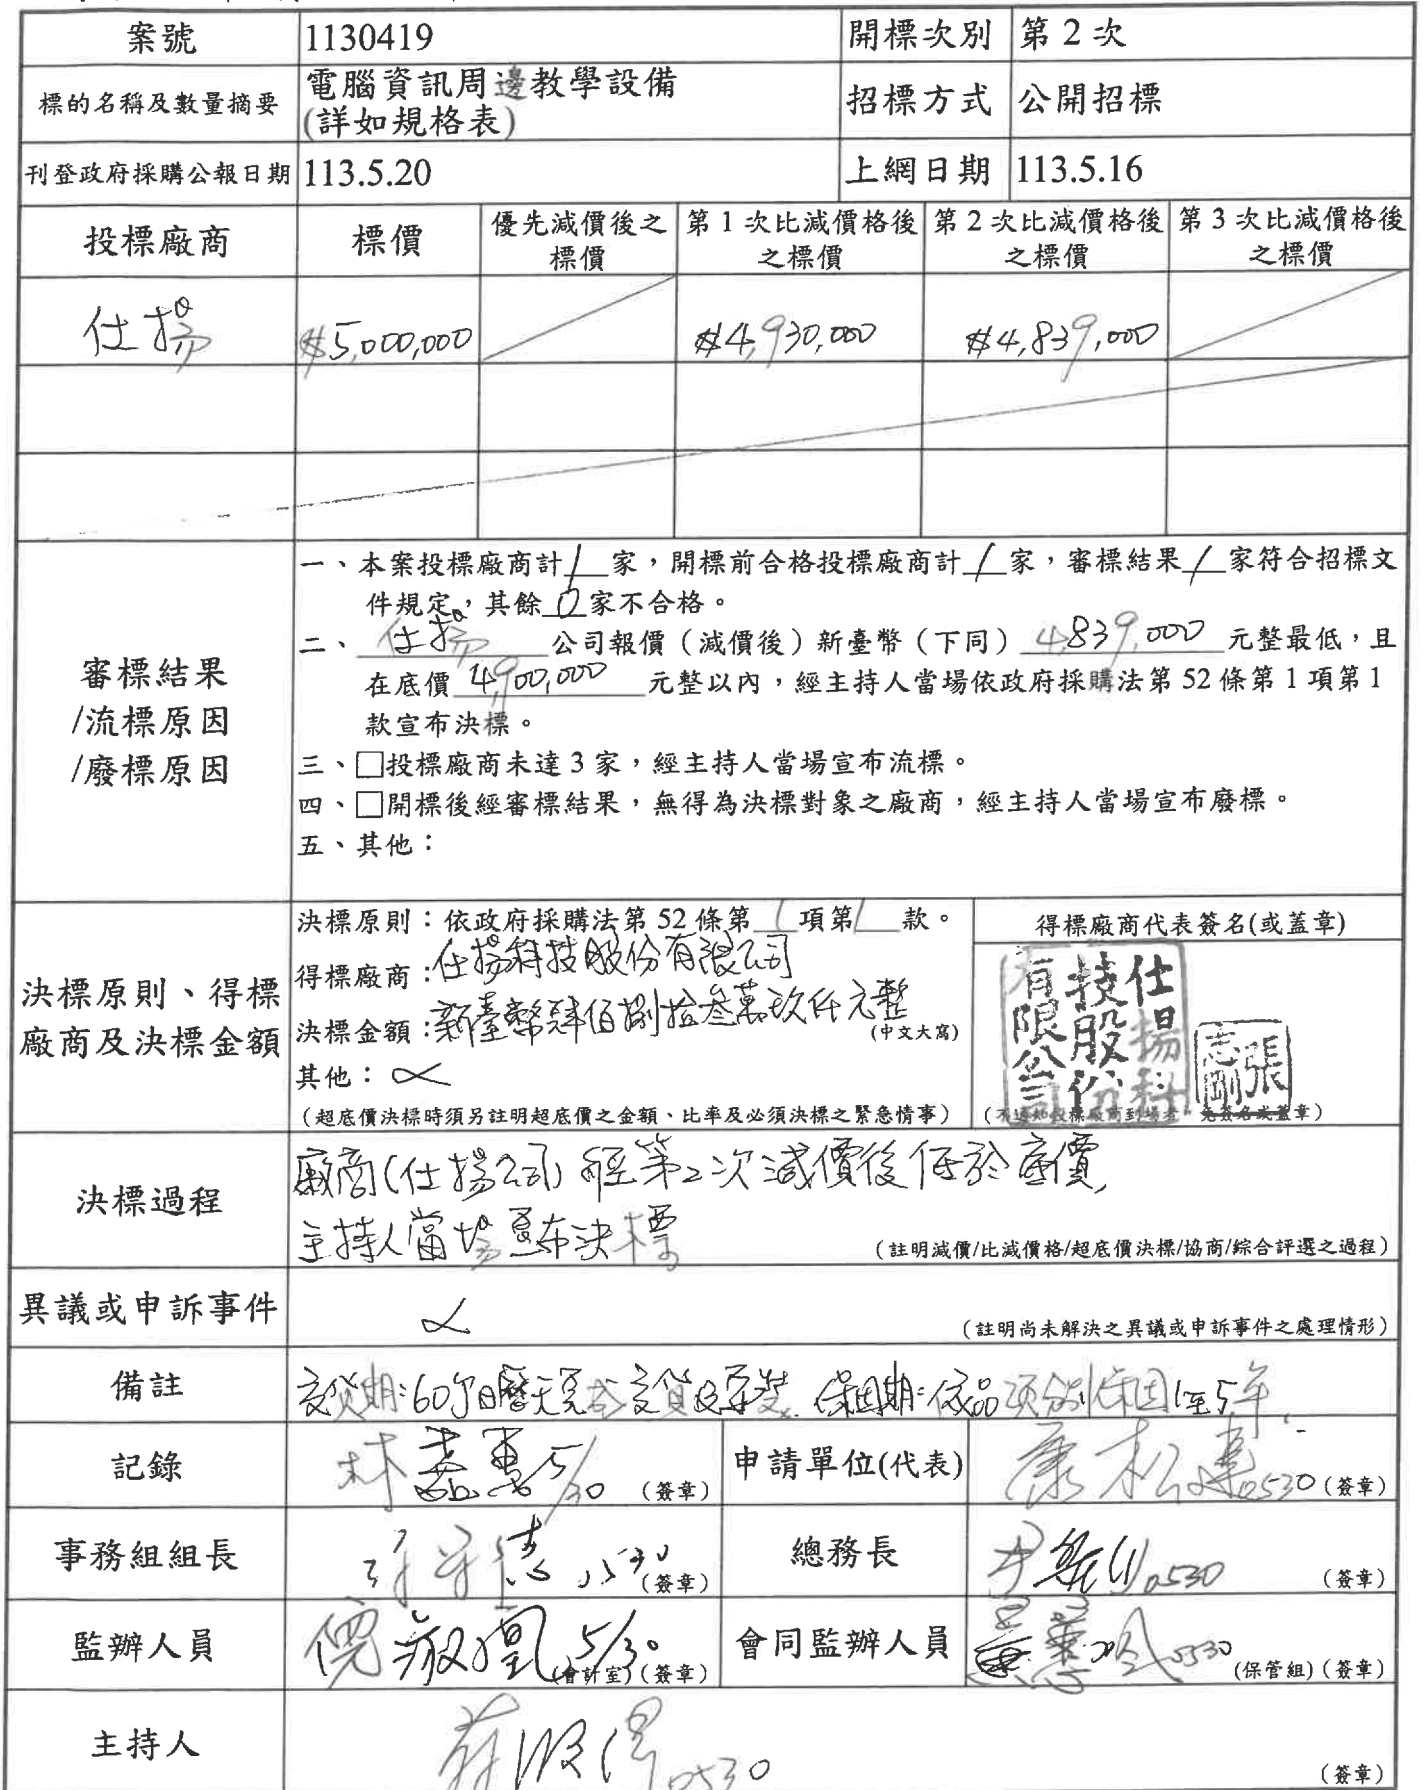 案號 1130419 開標次別 第 2 次
標的名稱及數量摘要 電腦資訊周邊教學設備 招標方式 公開招標
(詳如規格表)
刊登政府採購公報日期 113.5.20 上網日期 113.5.16
投標廠商 標價 優先減價後之標價 第 1 次比減價格後之標價 第 2 次比減價格後之標價 第 3 次比減價格後之標價
仕揚 $5,000,000 $4,930,000 $4,839,000
審標結果
/流標原因
/廢標原因
一、本案投標廠商計1家，開標前合格投標廠商計1家，審標結果1家符合招標文
件規定，其餘0家不合格。
二、仕揚公司報價（減價後）新臺幣（下同）4,839,000元整最低，且
在底價4,900,000元整以內，經主持人當場依政府採購法第 52 條第 1 項第 1
款宣布決標。
三、□投標廠商未達 3 家，經主持人當場宣布流標。
四、□開標後經審標結果，無得為決標對象之廠商，經主持人當場宣布廢標。
五、其他：
決標原則、得標
廠商及決標金額
決標原則：依政府採購法第 52 條第1項第1款。
得標廠商：仕揚科技股份有限公司
決標金額：新臺幣肆佰捌拾叁萬玖仟元整
(中文大寫)
其他：
（超底價決標時須另註明超底價之金額、比率及必須決標之緊急情事）
得標廠商代表簽名(或蓋章)
仕揚科技股份有限公司
張志剛
（不通知投標廠商到場者，免簽名或蓋章）
決標過程 廠商(仕揚公司)經第2次減價後低於底價,
主持人當場宣布決標
（註明減價/比減價格/超底價決標/協商/綜合評選之過程）
異議或申訴事件 （註明尚未解決之異議或申訴事件之處理情形）
備註 交貨期:60個日曆天完成交貨及安裝. 保固期:依品項分別保固1至5年.
記錄 林 5/30（簽章） 申請單位(代表) 康松 0530（簽章）
事務組組長 0530（簽章） 總務長 尹 0530（簽章）
監辦人員 倪淑凰 5/30 (會計室)（簽章） 會同監辦人員 0530 (保管組)（簽章）
主持人 0530（簽章）